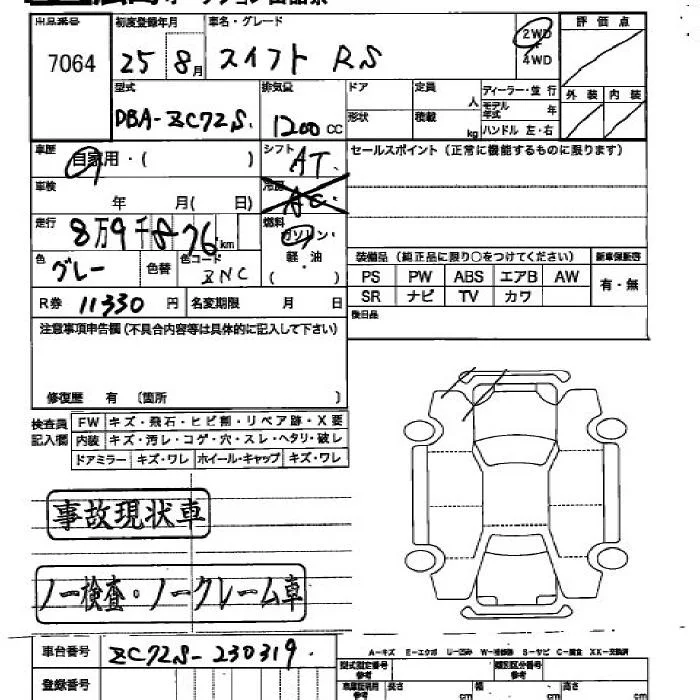 出品番号 初度登録年月 車名・グレード 評価点
7064 25 8月 スイフト RS 2WD・4WD
型式 排気量 ドア 定員 人 ディーラー・並行 外装 内装
DBA-ZC72S. 1200cc 形状 積載 kg モデル年式 年
ハンドル 左・右
車歴 自家用・( ) シフト AT. セールスポイント(正常に機能するものに限ります)
車検 年 月( 日) 冷房 AC.
走行 8万9千876km 燃料 ガソリン・軽油 ( )
色 グレー 色替 色コード ZNC
装備品(純正品に限り○をつけてください) 新車保証書
PS PW ABS エアB AW 有・無
SR ナビ TV カワ
R券 11330円 名変期限 月 日 後日品
注意事項申告欄(不具合内容等は具体的に記入して下さい)
修復歴 有 〔箇所 〕
検査員記入欄 FW キズ・飛石・ヒビ割・リペア跡・X要
内装 キズ・汚レ・コゲ・穴・スレ・ヘタリ・破レ
ドアミラー キズ・ワレ ホイール・キャップ キズ・ワレ
事故現状車
ノー検査・ノークレーム車
A-キズ E-エクボ U-凹み W-補修跡 S-サビ C-腐食 XX-交換済
車台番号 ZC72S-230319. 型式指定番号 参考 類別区分番号 参考
登録番号 長さ cm 幅 cm 高さ cm